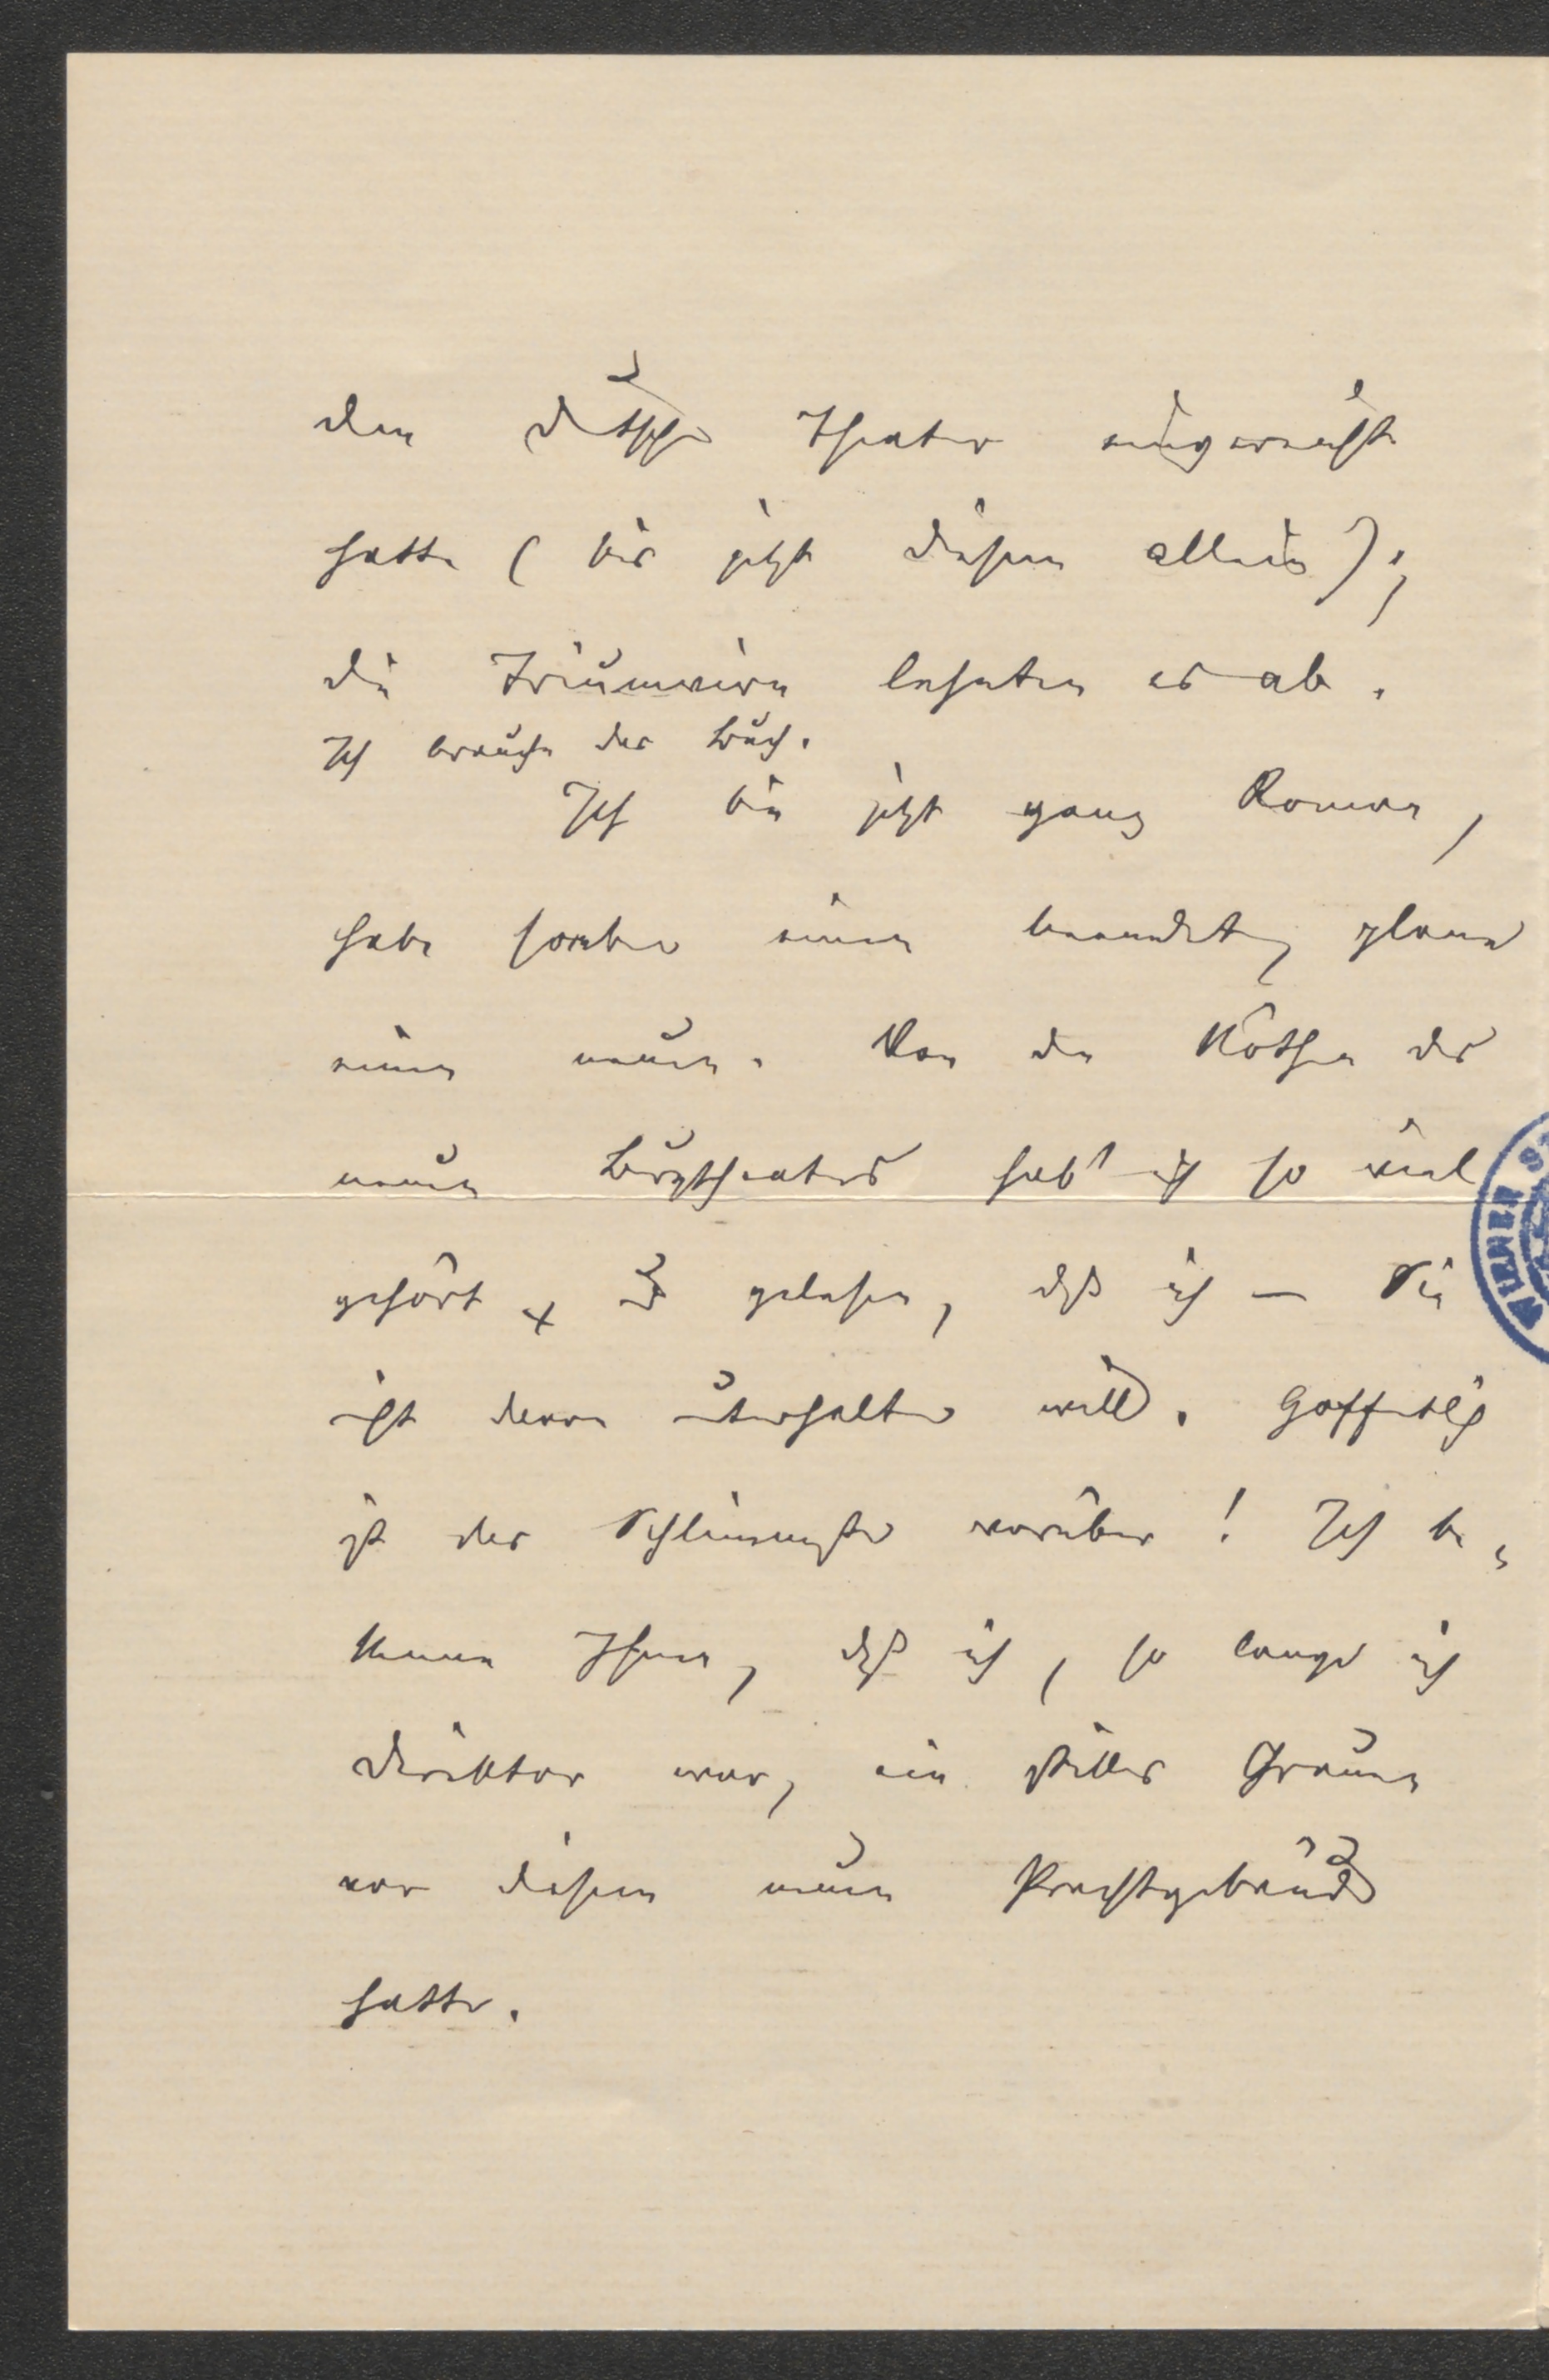 dem deutschen Theater eingereicht
hatte (bis jetzt diesem allein);
die Triumvirn lehnten es ab.
Ich brauche das Buch.
Ich bin jetzt ganz Roman,
habe soeben einen beendet, plane
einen neuen. Von den Nöthen des
neuen Burgtheaters hab' ich so viel
gehört u gelesen, daß ich – Sie
nicht davon unterhalten will. Hoffentlich
ist das Schlimmste vorüber! Ich be-
kenne Ihnen, daß ich, so lange ich
Direktor war, ein stilles Grauen
vor diesem neuen Prachtgebäude
hatte.
WIENER ST